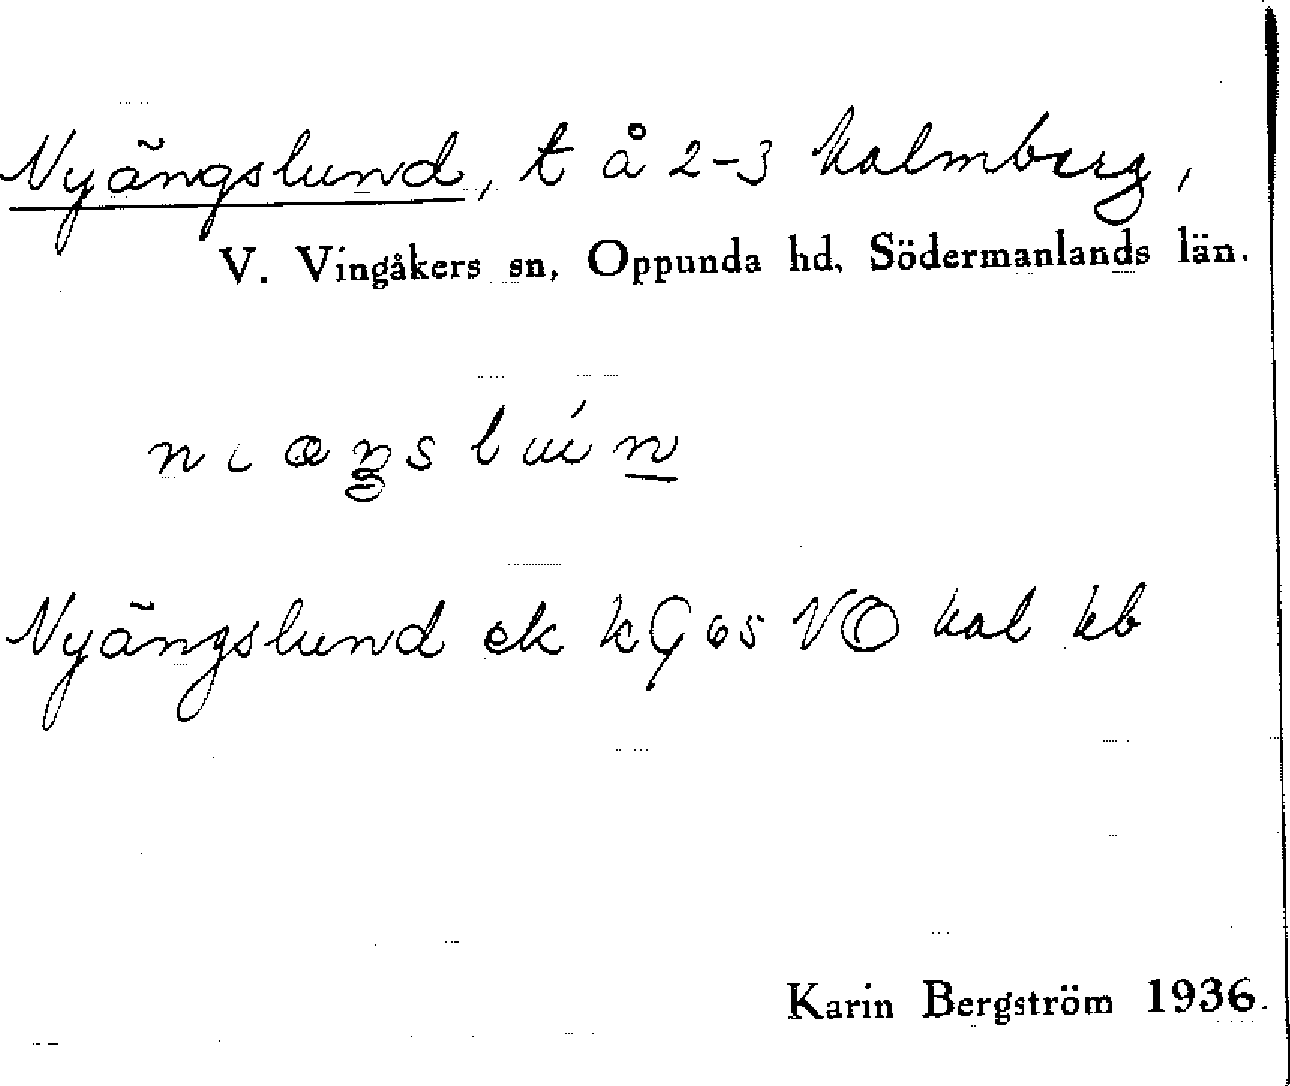 Nyängslund, t å 2-3 Kalmberg,
V. Vingåkers sn, Oppunda hd, Södermanlands län.
Nyängslund ek kG 65 VO kal kb
Karin Bergström 1936.